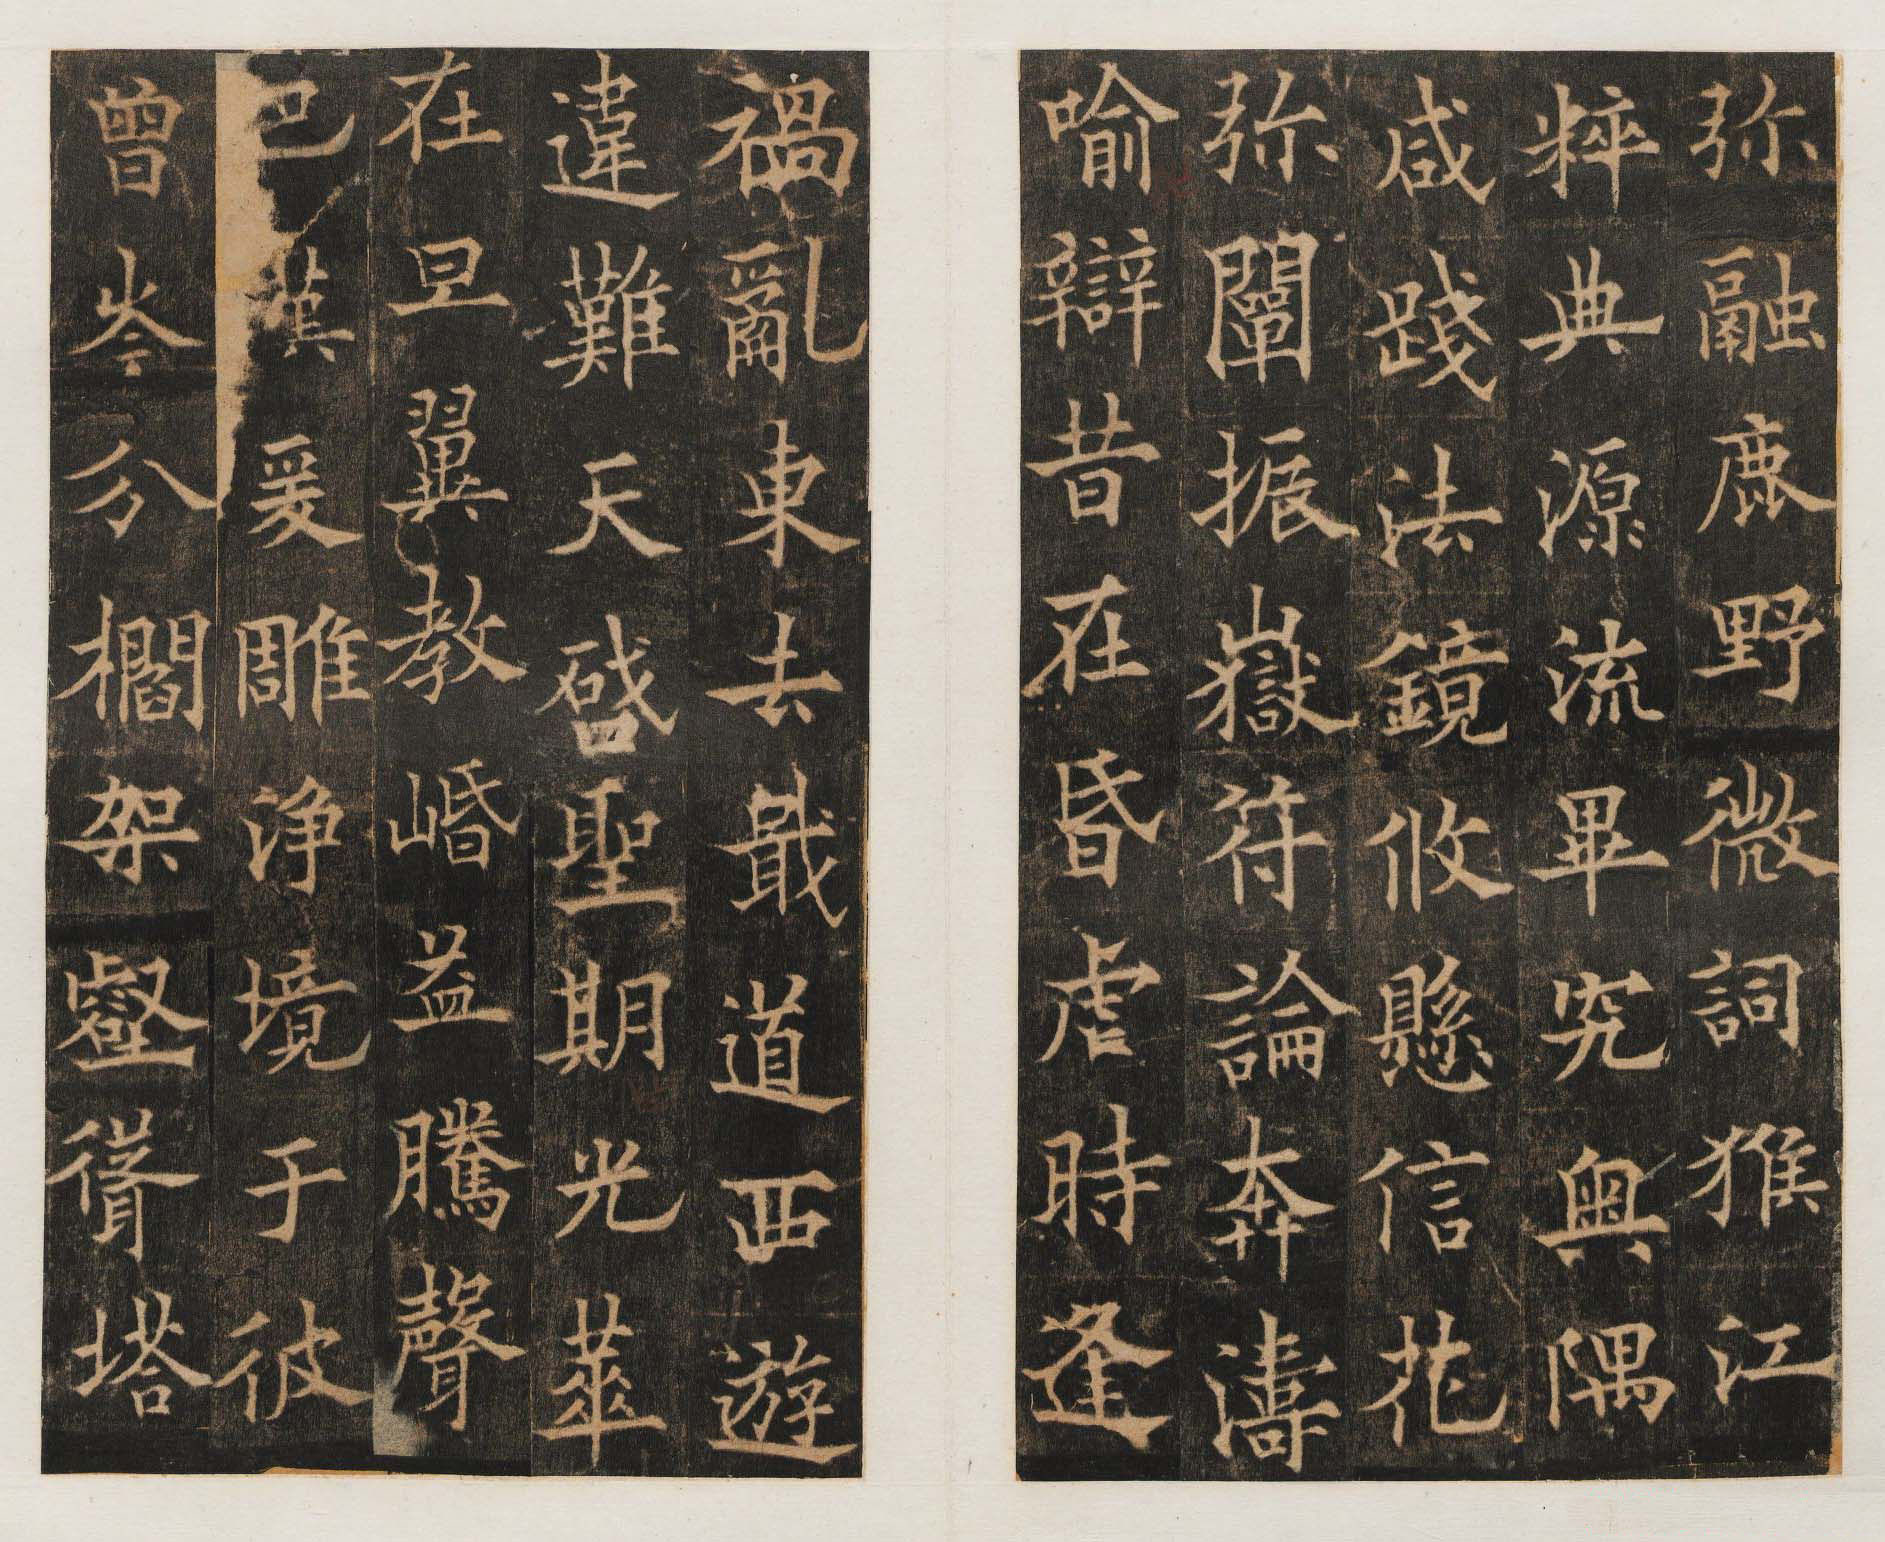 弥融鹿野微詞猴江
粹典源流畢究奥隅
咸踐法鏡攸懸信花
弥闡振嶽符論奔濤
喻辯昔在昏虐時逢
禍亂東去戢道西遊
違難天啓聖期光華
在旦翼教㟭益騰聲
漢爰雕淨境于彼
曾岑分櫩架壑聳塔